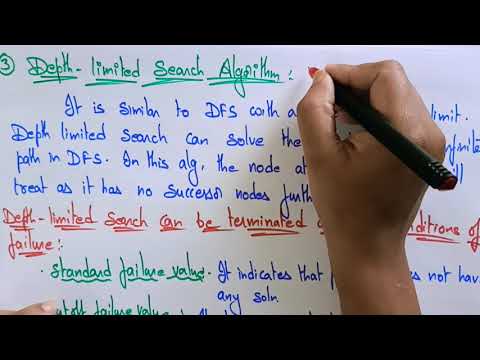 ③ Depth-limited Search Algorithm:
It is similar to DFS with a limit.
Depth limited search can solve the
path in DFS. In this alg, the node at
treat as it has no successor nodes furth
Depth-limited search can be terminated conditions of
failure:
· standard failure value. It indicates that not have
any soln.
failure value